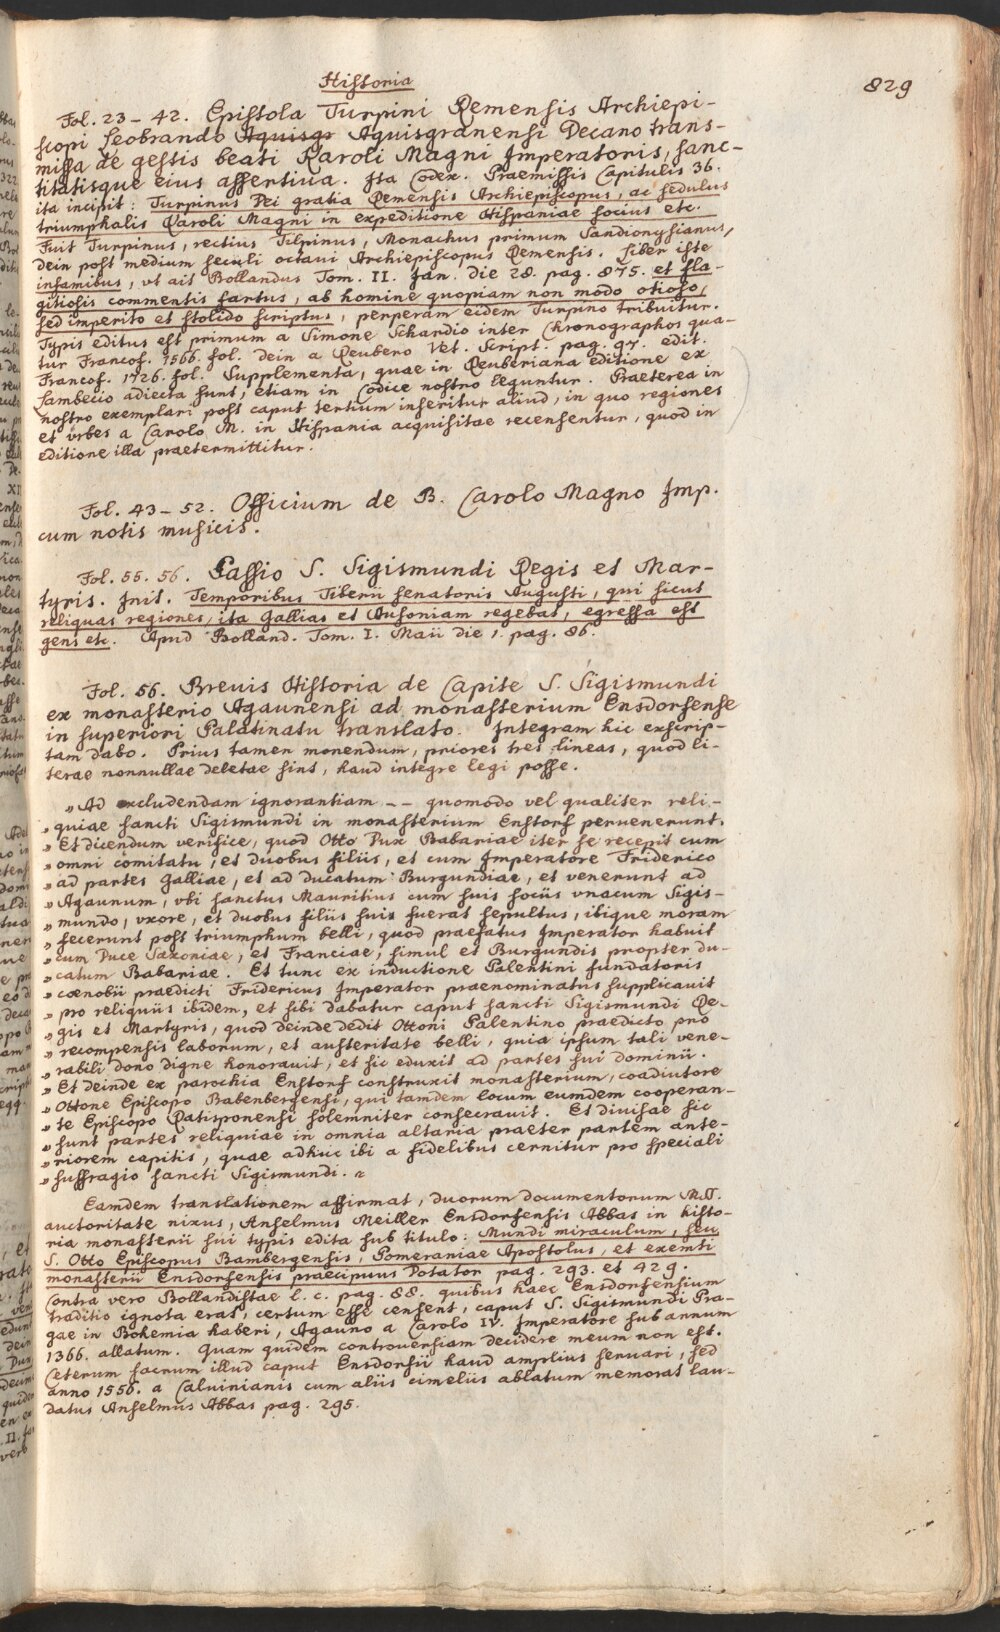 Historia
829
Fol. 23 – 42. Epistola Turpini Remensis Archiepi-
scopi Leobrando Aquisgr Aquisgranensi Decano trans-
missa de gestis beati Karoli Magni Imperatoris, sanc-
titatisque eius assertiua. Ita Codex. Praemissis Capitulis 36.
ita incipit: Turpinus Dei gratia Remensis Archiepiscopus, ac sedulus
triumphalis Karoli Magni in expeditione Hispaniae socius etc.
Fuit Turpinus, rectius Tilpinus, Monachus primum Sandionysianus,
dein post medium seculi octaui Archiepiscopus Remensis. Liber iste
infamibus, vt ait Bollandus Tom. II. Jan. die 28. pag. 875. et fla-
gitiosis commentis fartus, ab homine quopiam non modo otioso,
sed imperito et stolido scriptus, perperam eidem Turpino tribuitur.
Typis editus est primum a Simone Schardio inter Chronographos qua-
tur Francof. 1566. fol. dein a Reubero Vet. Script. pag. 97. edit.
Francof. 1726. fol. Supplementa, quae in Reuberiana editione ex
Lambecio adiecta sunt, etiam in Codice nostro leguntur. Praeterea in
nostro exemplari post caput tertium inseritur aliud, in quo regiones
et vrbes a Carolo M. in Hispania acquisitae recensentur, quod in
editione illa praetermittitur.
Fol. 43 – 52. Officium de B. Carolo Magno Imp.
cum notis musicis.
Fol. 55. 56. Passio S. Sigismundi Regis et Mar-
tyris. Init. Temporibus Tiberii senatoris Augusti, qui sicut
reliquas regiones, ita Gallias et Ausoniam regebat, egressa est
gens etc. Apud Bolland. Tom. I. Maii die 1. pag. 86.
Fol. 56. Breuis Historia de Capite S. Sigismundi
ex monasterio Agaunensi ad monasterium Ensdorfense
in superiori Palatinatu translato. Integram hic exscrip-
tam dabo. Prius tamen monendum, priores tres lineas, quod li-
terae nonnullae deletae sint, haud integre legi posse.
„ Ad excludendam ignorantiam – – quomodo vel qualiter reli-
„ quiae sancti Sigismundi in monasterium Enstorf peruenerunt.
„ Et dicendum verifice, quod Otto Dux Babariae iter se recepit cum
„ omni comitatu, et duobus filiis, et cum Imperatore Friderico
„ ad partes Galliae, et ad ducatum Burgundiae, et venerunt ad
„ Agaunum, vbi sanctus Mauritius cum suis sociis vnacum Sigis-
„ mundo, vxore, et duobus filiis suis fuerat sepultus, ibique moram
„ fecerunt post triumphum belli, quod praefatus Imperator habuit
„ cum Duce Saxoniae, et Franciae, simul et Burgundis propter du-
„ catum Babariae. Et tunc ex inductione Palentini fundatoris
„ coenobii praedicti Fridericus Imperator praenominatus supplicauit
„ pro reliquiis ibidem, et sibi dabatur caput sancti Sigismundi Re-
„ gis et Martyris, quod deinde dedit Ottoni Palentino praedicto pro
„ recompensis laborum, et austeritate belli, quia ipsum tali vene-
„ rabili dono digne honorauit, et sic eduxit ad partes sui dominii.
„ Et deinde ex parochia Enstorf construxit monasterium, coadiutore
„ Ottone Episcopo Babenbergensi, qui tamdem locum eumdem cooperan-
„ te Episcopo Ratisponensi solemniter consecrauit. Et diuisae sic
„ sunt partes reliquiae in omnia altaria praeter partem ante-
„ riorem capitis, quae adhuc ibi a fidelibus cernitur pro speciali
„ suffragio sancti Sigismundi. „
Eamdem translationem affirmat, duorum documentorum MSS.
auctoritate nixus, Anselmus Meiller Ensdorfensis Abbas in histo-
ria monasterii sui typis edita sub titulo: Mundi miraculum, seu
S. Otto Episcopus Bambergensis, Pomeraniae Apostolus, et exemti
monasterii Ensdorfensis praecipuus Dotator pag. 293. et 429.
Contra vero Bollandistae l. c. pag. 88. quibus haec Ensdorfensium
traditio ignota erat, certum esse censent, caput S. Sigismundi Pra-
gae in Bohemia haberi, Agauno a Carolo IV. Imperatore sub annum
1366. allatum. Quam quidem controuersiam decidere meum non est.
Ceterum sacrum illud caput Ensdorfii haud amplius seruari, sed
anno 1556. a Caluinianis cum aliis cimeliis ablatum memorat lau-
datus Anselmus Abbas pag. 295.